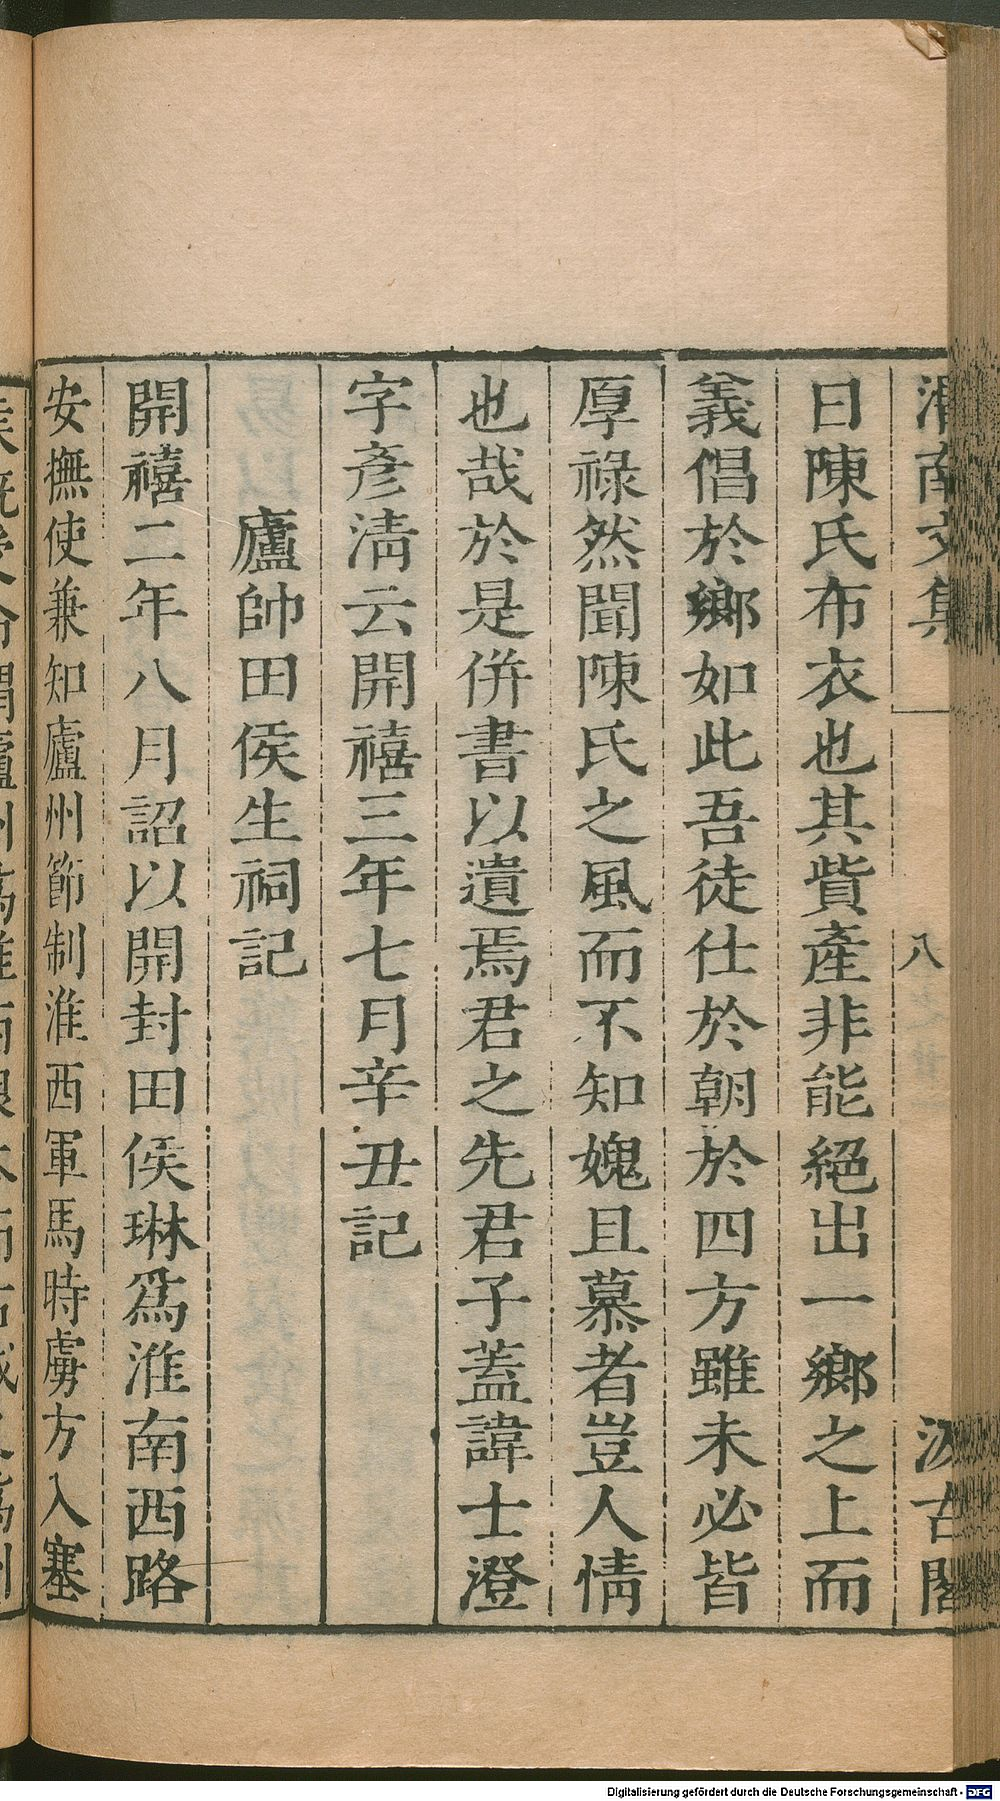 渭南文集 八 汲古閣
曰陳氏布衣也其貲產非能絕出一鄉之上而
義倡於鄉如此吾徒仕於朝於四方雖未必皆
厚祿然聞陳氏之風而不知媿且慕者豈人情
也哉於是併書以遺焉君之先君子蓋諱士澄
字彥淸云開禧三年七月辛丑記
廬帥田侯生祠記
開禧二年八月詔以開封田侯琳爲淮南西路
安撫使兼知廬州節制淮西軍馬時虜方入塞
Digitalisierung gefördert durch die Deutsche Forschungsgemeinschaft - DFG